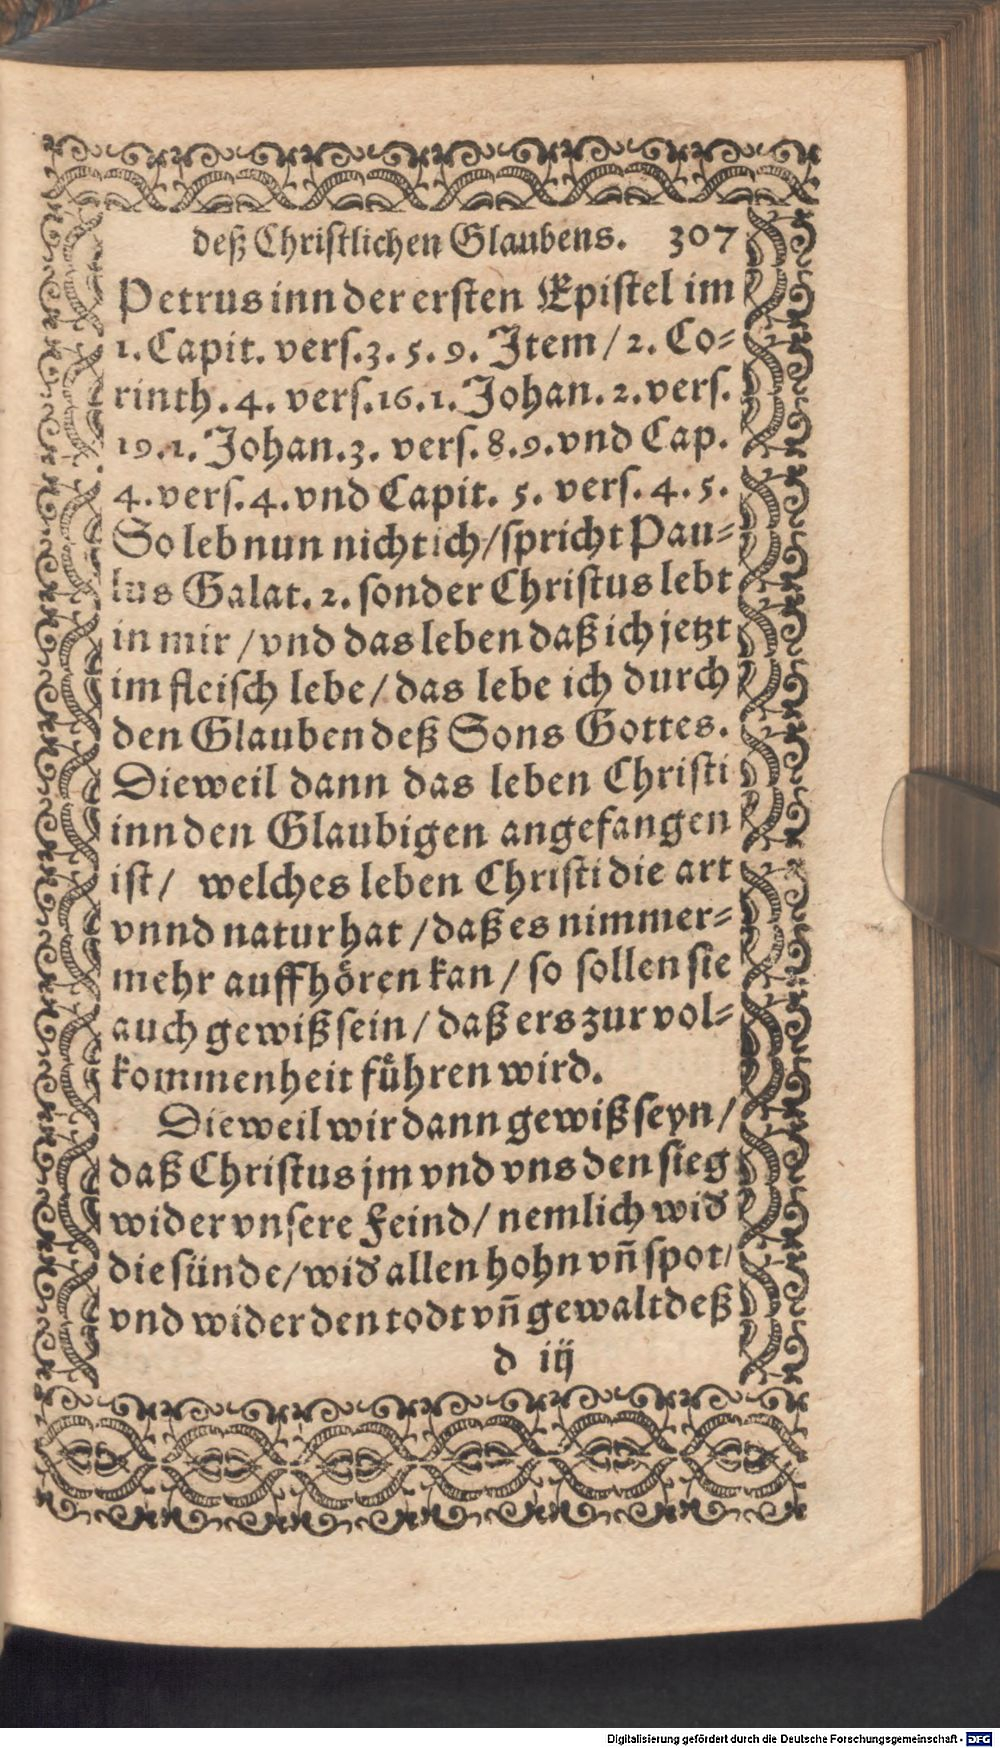 deß Christlichen Glaubens. 307
Petrus inn der ersten Epistel im
1. Capit. vers.3. 5. 9. Item / 2. Co⸗
rinth. 4. vers.16. 1. Johan. 2. vers.
19. 1. Johan.3. vers. 8.9. vnd Cap.
4. vers. 4. vnd Capit. 5. vers. 4. 5.
So leb nun nicht ich / spricht Pau⸗
lus Galat. 2. sonder Christus lebt
in mir / vnd das leben daß ich jetzt
im fleisch lebe / das lebe ich durch
den Glauben deß Sons Gottes.
Dieweil dann das leben Christi
inn den Glaubigen angefangen
ist / welches leben Christi die art
vnnd natur hat / daß es nimmer⸗
mehr auffhoͤren kan / so sollen sie
auch gewiß sein / daß ers zur vol⸗
kommenheit fuͤhren wird.
Dieweil wir dann gewiß seyn /
daß Christus jm vnd vns den sieg
wider vnsere Feind / nemlich wid̕
die sünde / wid̕ allen hohn vñ spot /
vnd wider den todt vñ gewalt deß
d iij
Digitalisierung gefördert durch die Deutsche Forschungsgemeinschaft - DFG